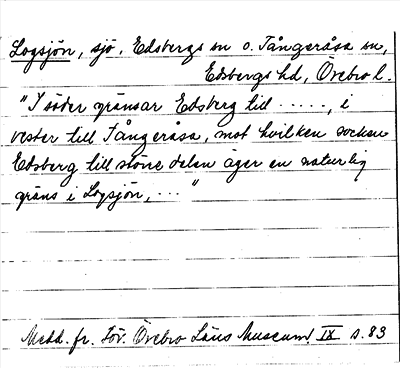 Logsjön, sjö, Edsbergs sn o. Tångeråsa sn,
Edsbergs hd, Örebro l.
"I söder gränsar Edsberg till ....., i
vester till Tångeråsa, mot hvilken socken
Edsberg till större delen äger en naturlig
gräns i Logsjön, ... "
Medd. fr. För. Örebro Läns Museum, IX s. 83